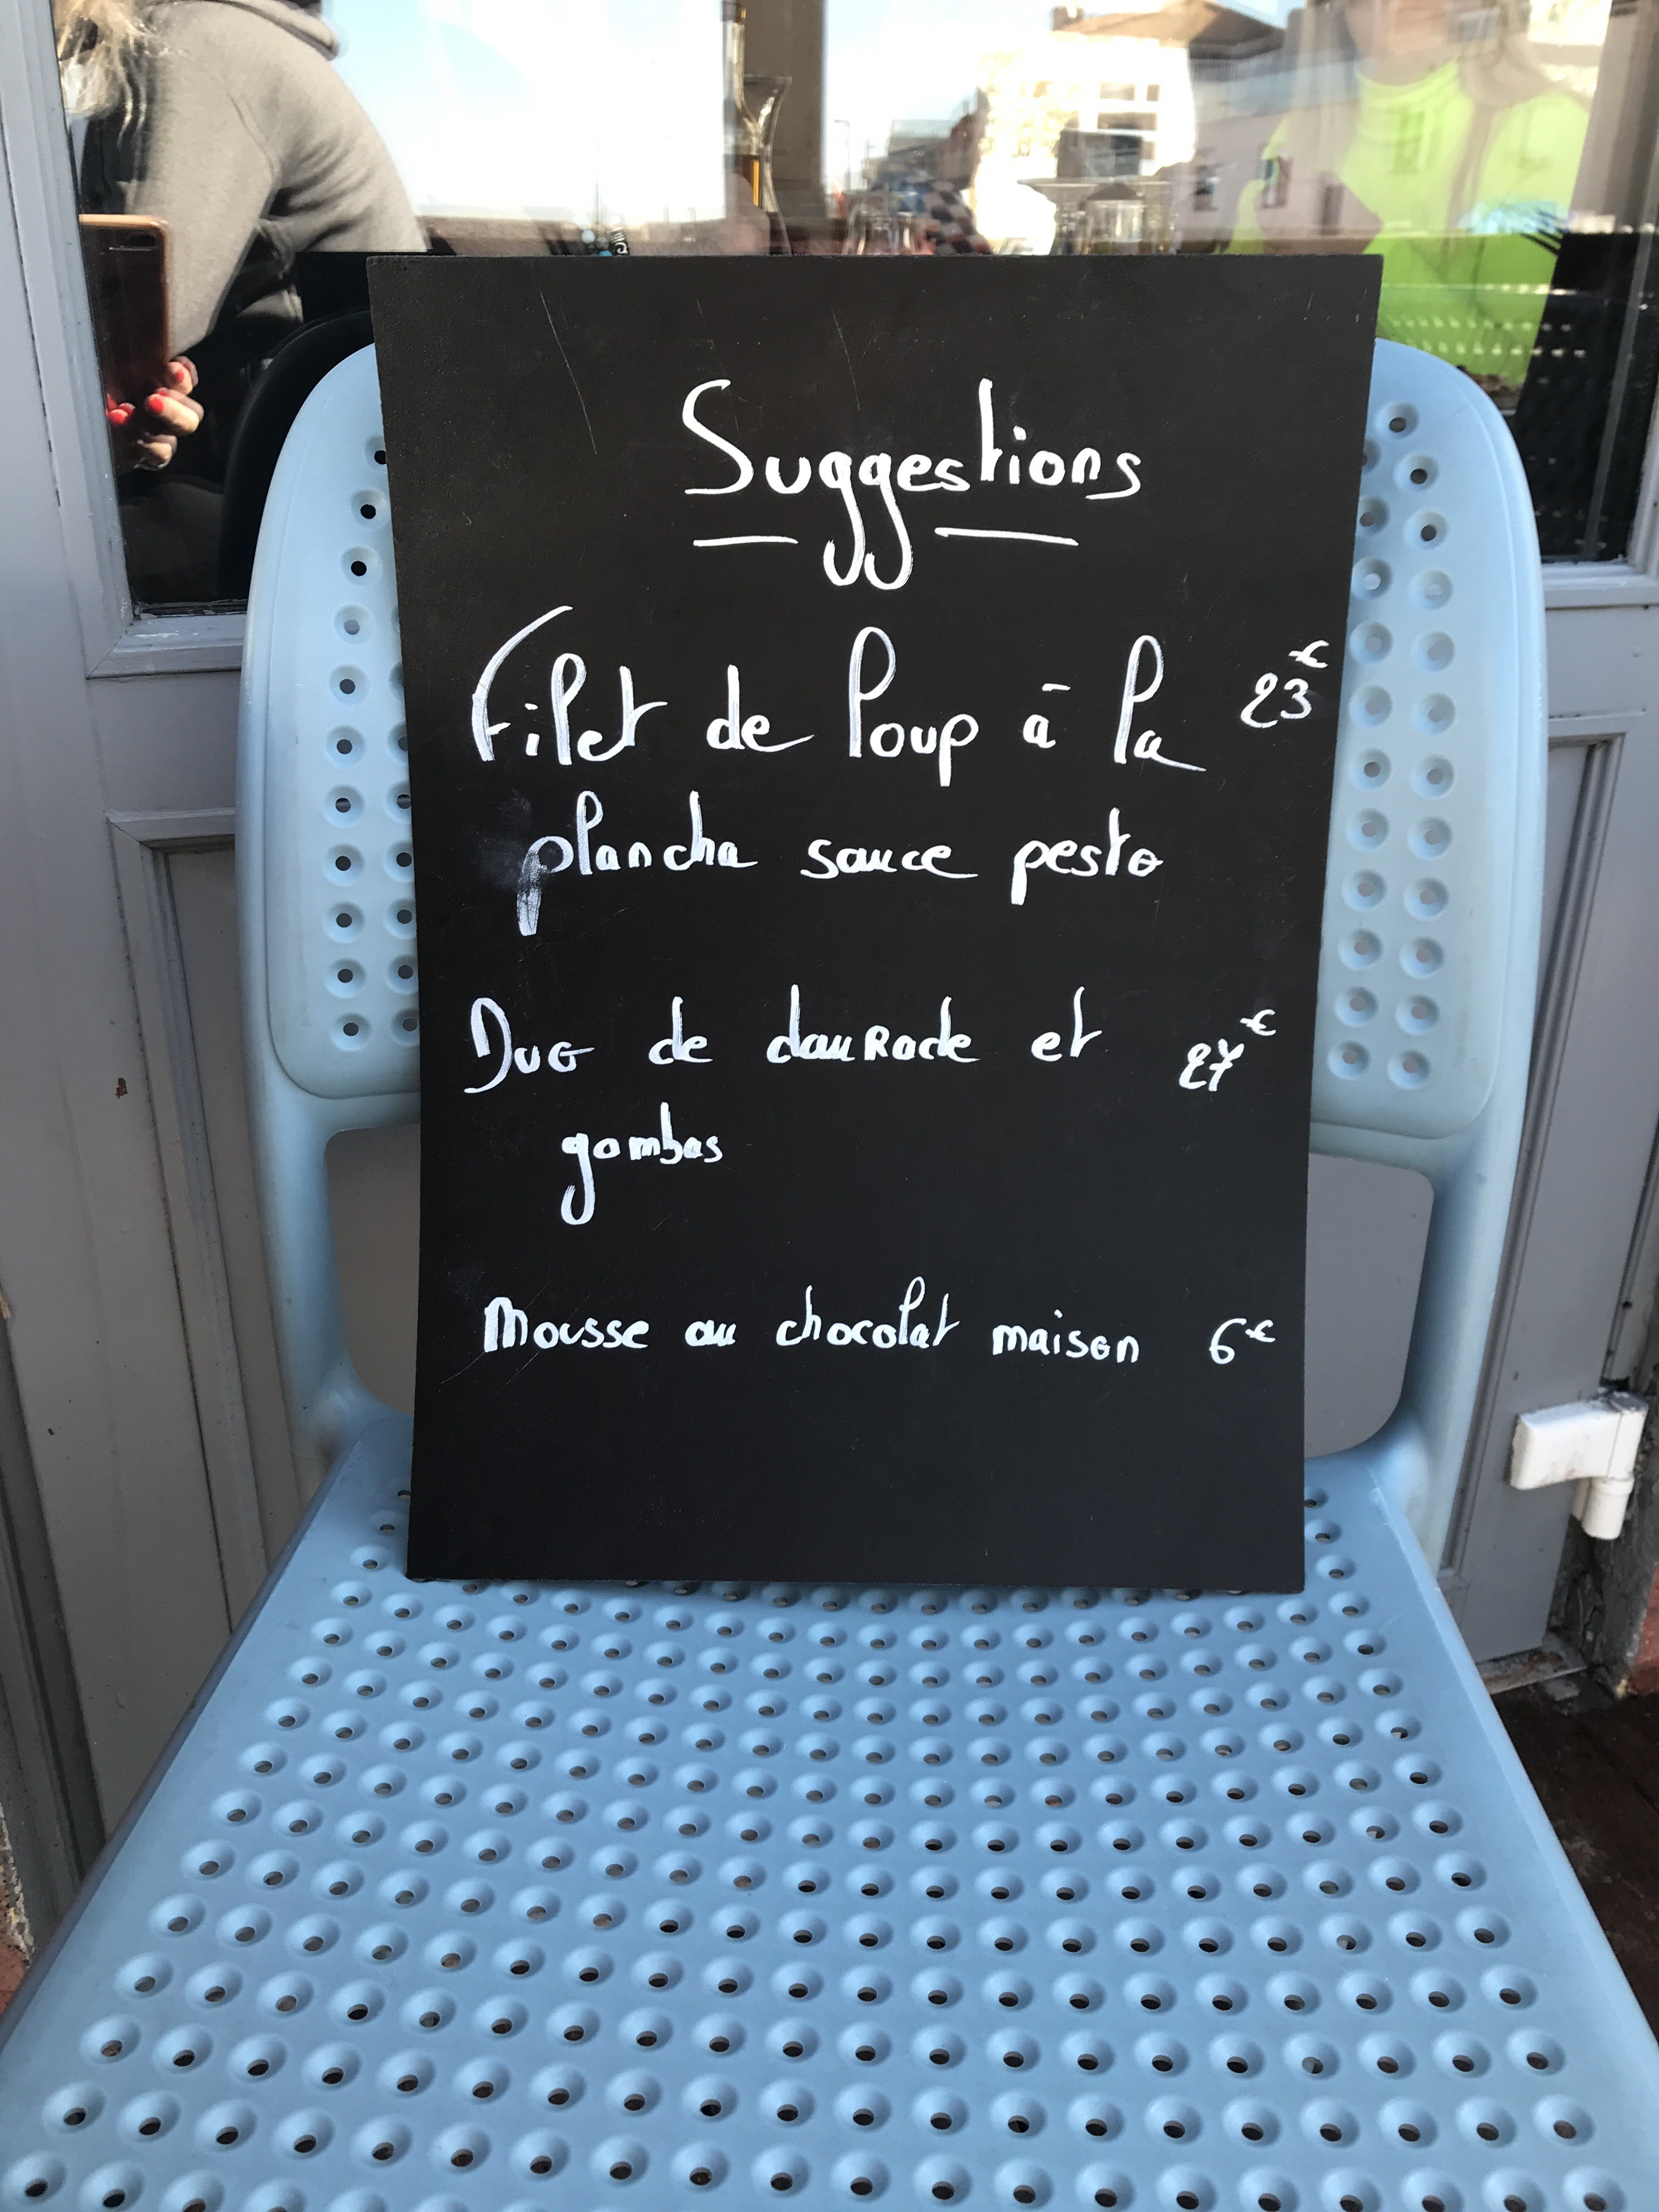 Suggestions
Filet de loup à la 23€
plancha sauce pesto
Duo de daurade et 27€
gambas
Mousse au chocolat maison 6€